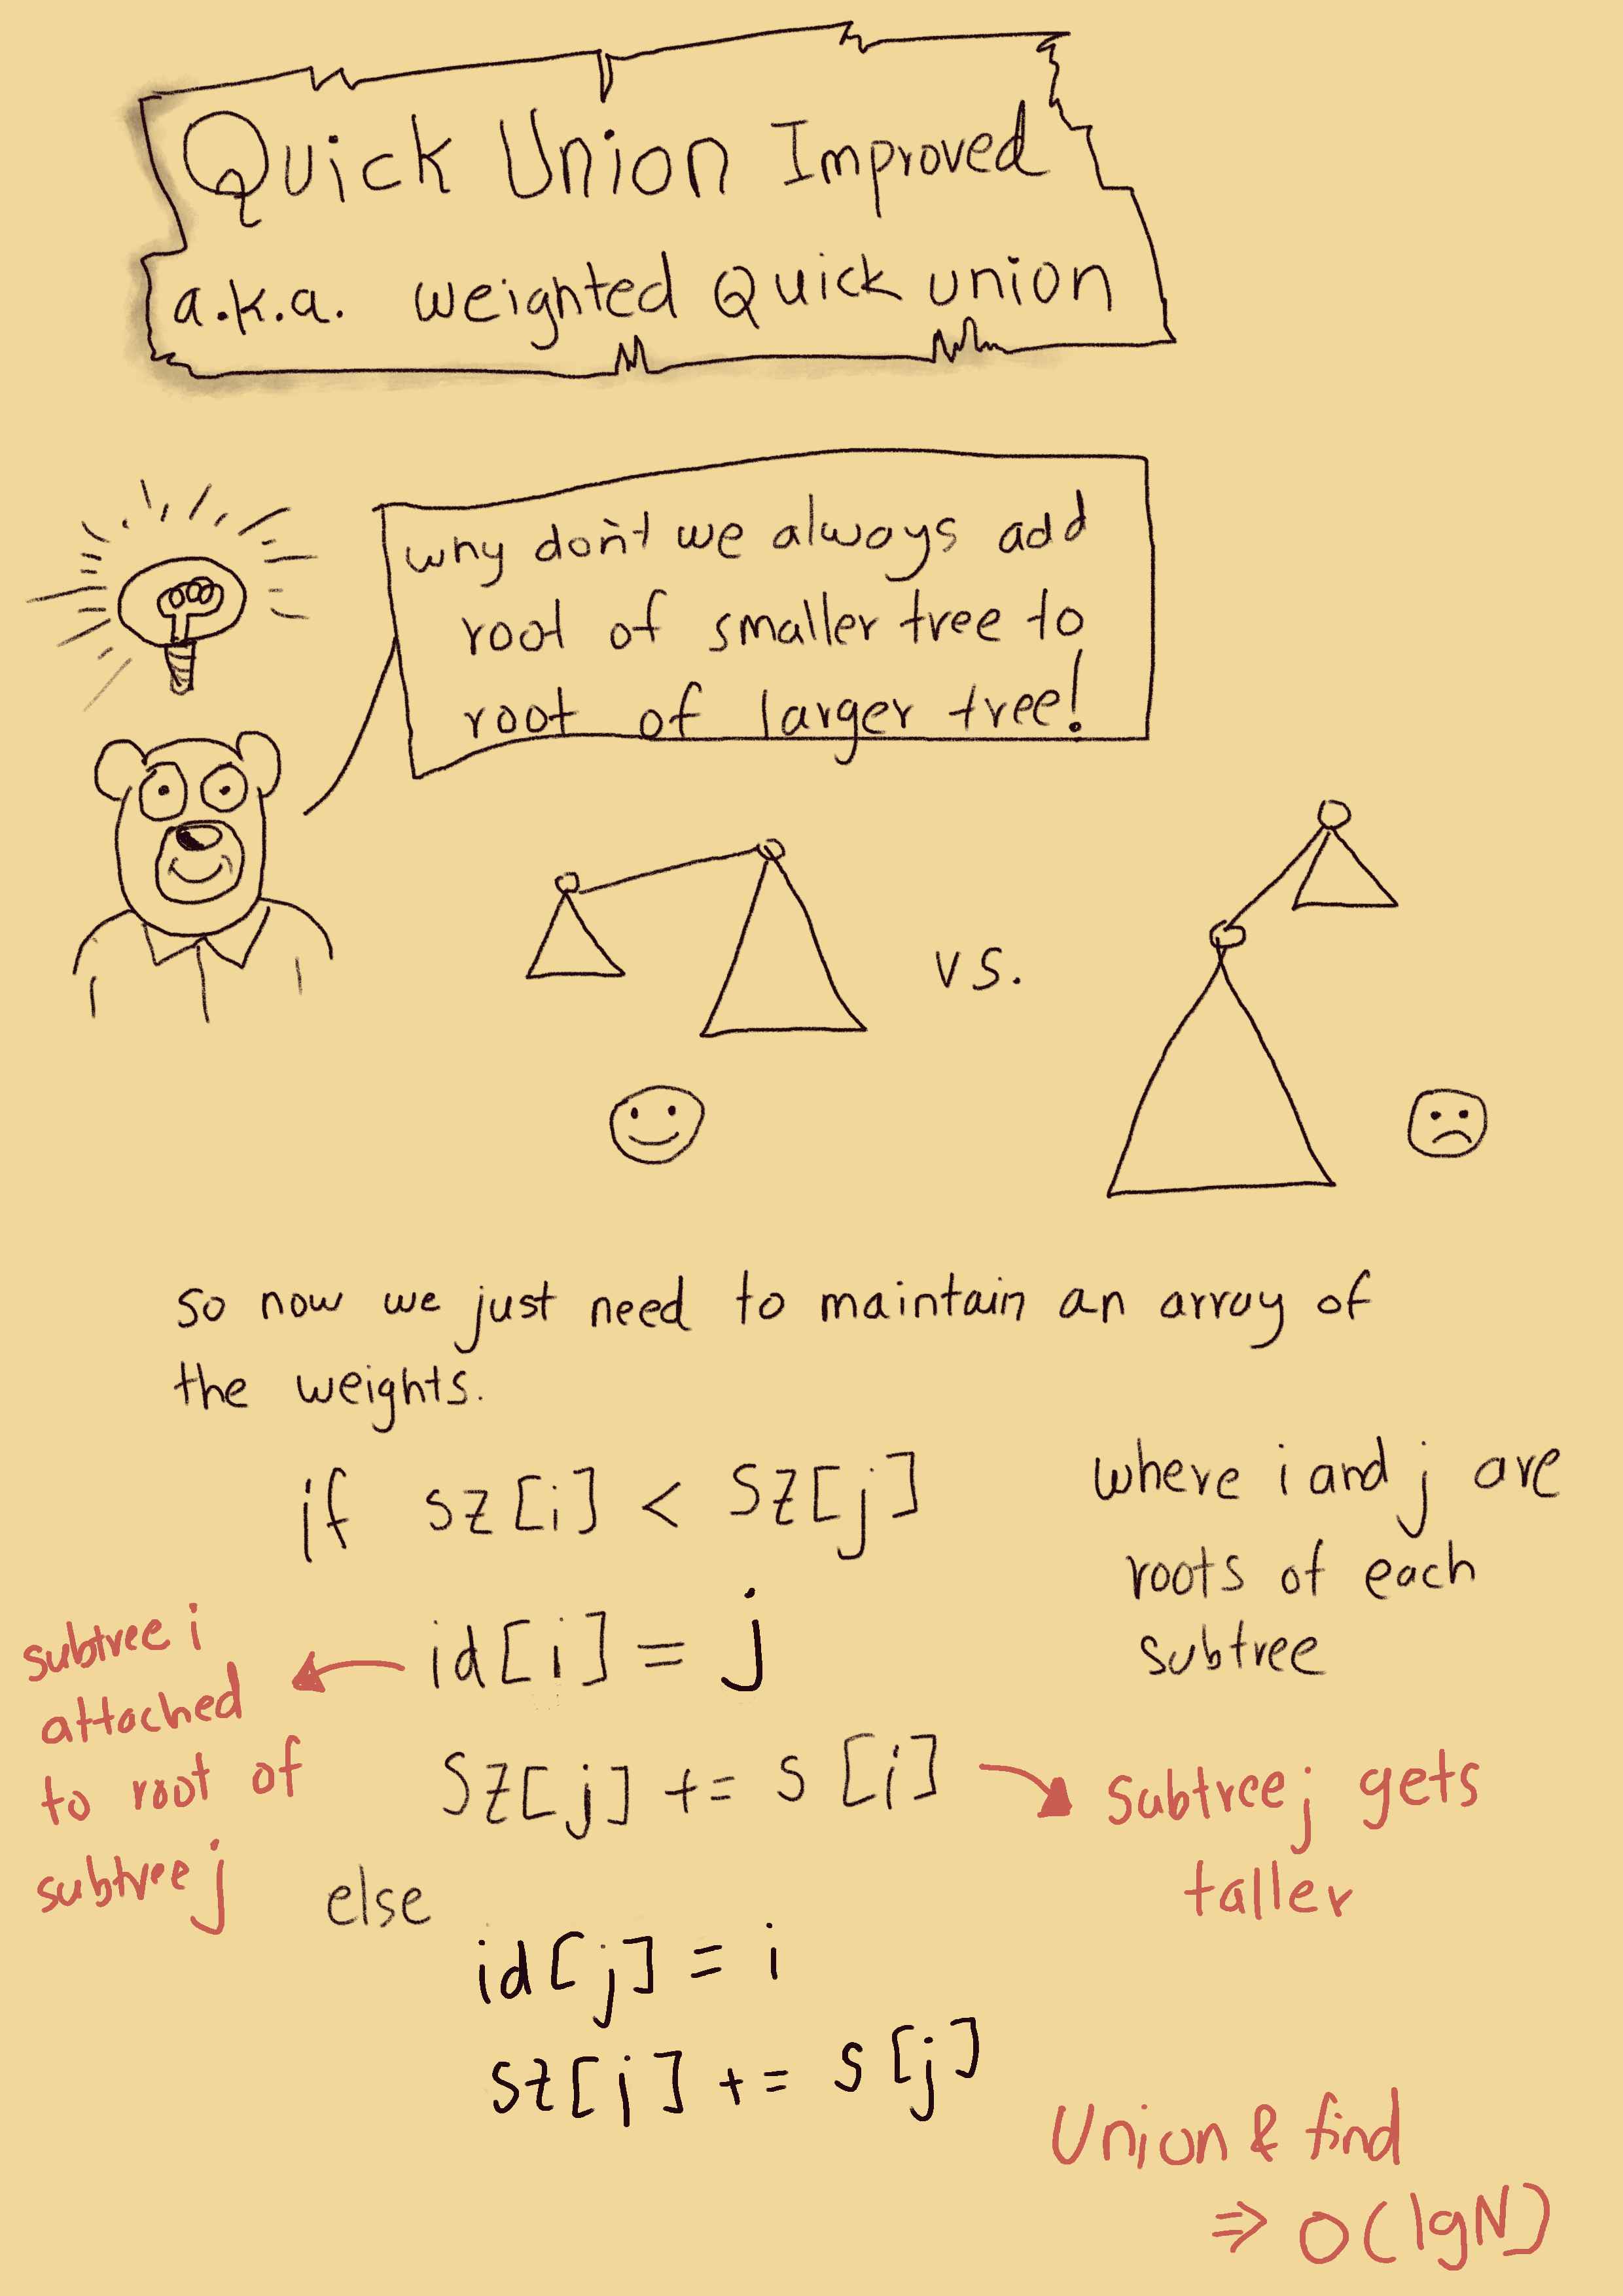 Quick Union Improved
a.k.a. weighted Quick union
why don't we always add
root of smaller tree to
root of larger tree!
vs.
so now we just need to maintain an array of
the weights.
if sz[i] < sz[j]
where i and j are
roots of each
subtree
id[i] = j
subtree i
attached
to root of
subtree j
sz[j] += s[i]
subtree j gets
taller
else
id[j] = i
sz[i] += s[j]
Union & find
⇒ O(lgN)